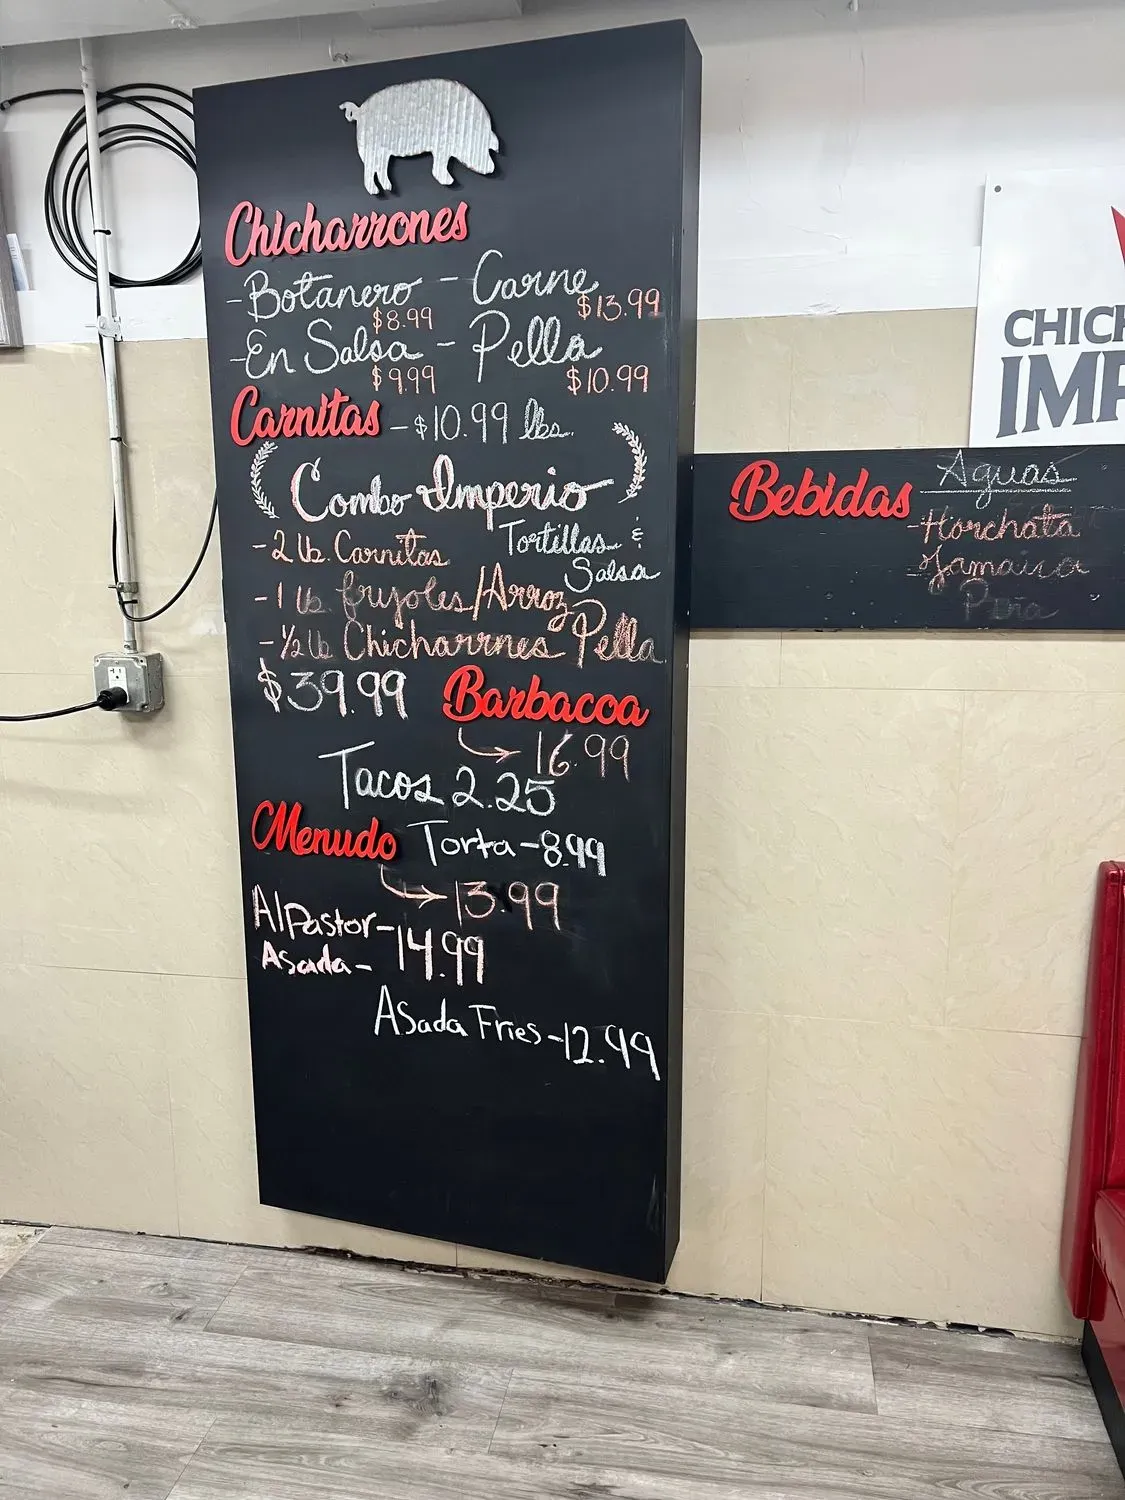 Chicharrones
- Botanero $8.99 - Carne $13.99
- En Salsa $9.99 - Pella $10.99
Carnitas - $10.99 lbs.
Combo Imperio
- 2 lb. Carnitas Tortillas &
Salsa
- 1 lb. frijoles/Arroz
- 1/2 lb Chicharrnes Pella
$39.99 Barbacoa
16.99
Tacos 2.25
Menudo Torta - 8.99
13.99
Al Pastor -
Asada - 14.99
Asada Fries - 12.99
Bebidas Aguas
- Horchata
- Jamaica
CHICH
IMP